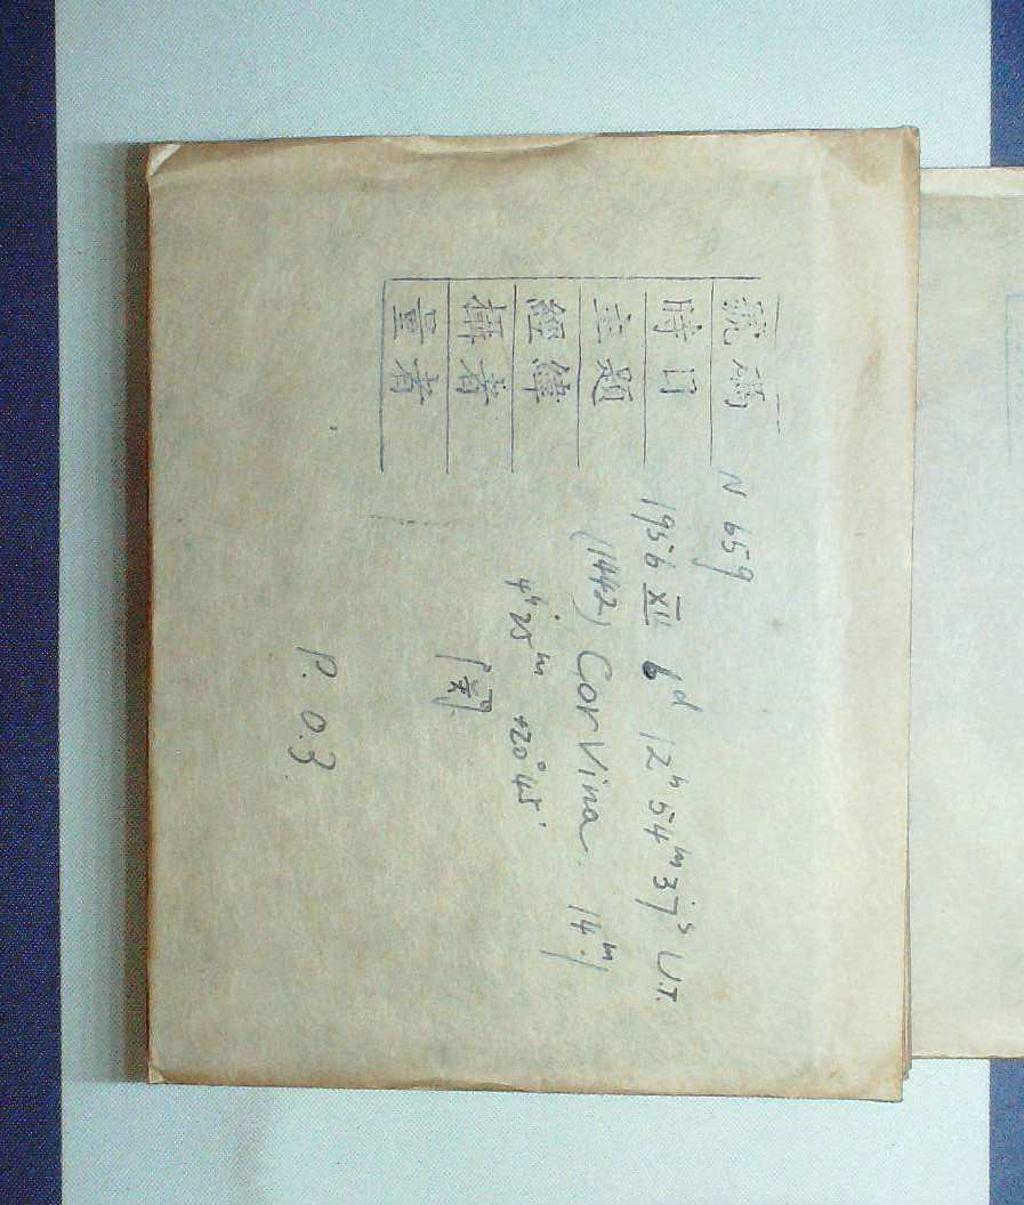 號碼 N 659
時日 1956 XII 6ᵈ 12ʰ 54ᵐ 37ˢ U.T.
主題 (1442) Corvina. 14ᵐ.1
經緯 4ʰ 25ᵐ +20° 45'
攝者
量者
P. 0.3